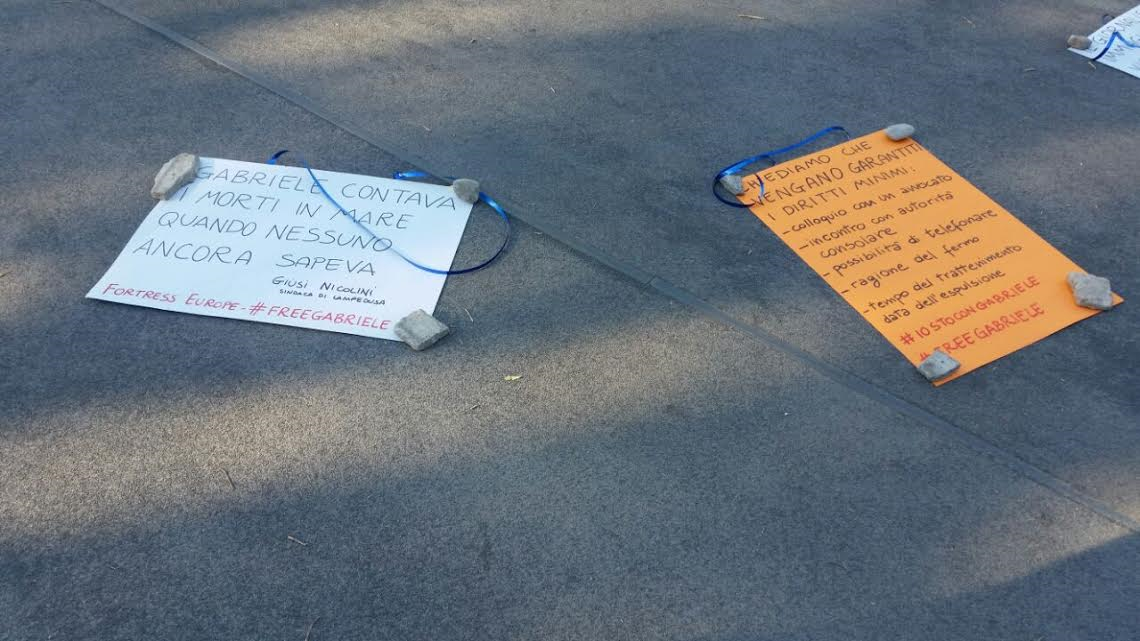 GABRIELE CONTAVA
I MORTI IN MARE
QUANDO NESSUNO
ANCORA SAPEVA
GIUSI NICOLINI
SINDACA DI LAMPEDUSA
FORTRESS EUROPE - #FREEGABRIELE
CHIEDIAMO CHE
VENGANO GARANTITI
I DIRITTI MINIMI:
- colloquio con un avvocato
- incontro con autorità
consolare
- possibilità di telefonare
- ragione del fermo
- tempo del trattenimento
data dell'espulsione
#IOSTOCONGABRIELE
#FREEGABRIELE